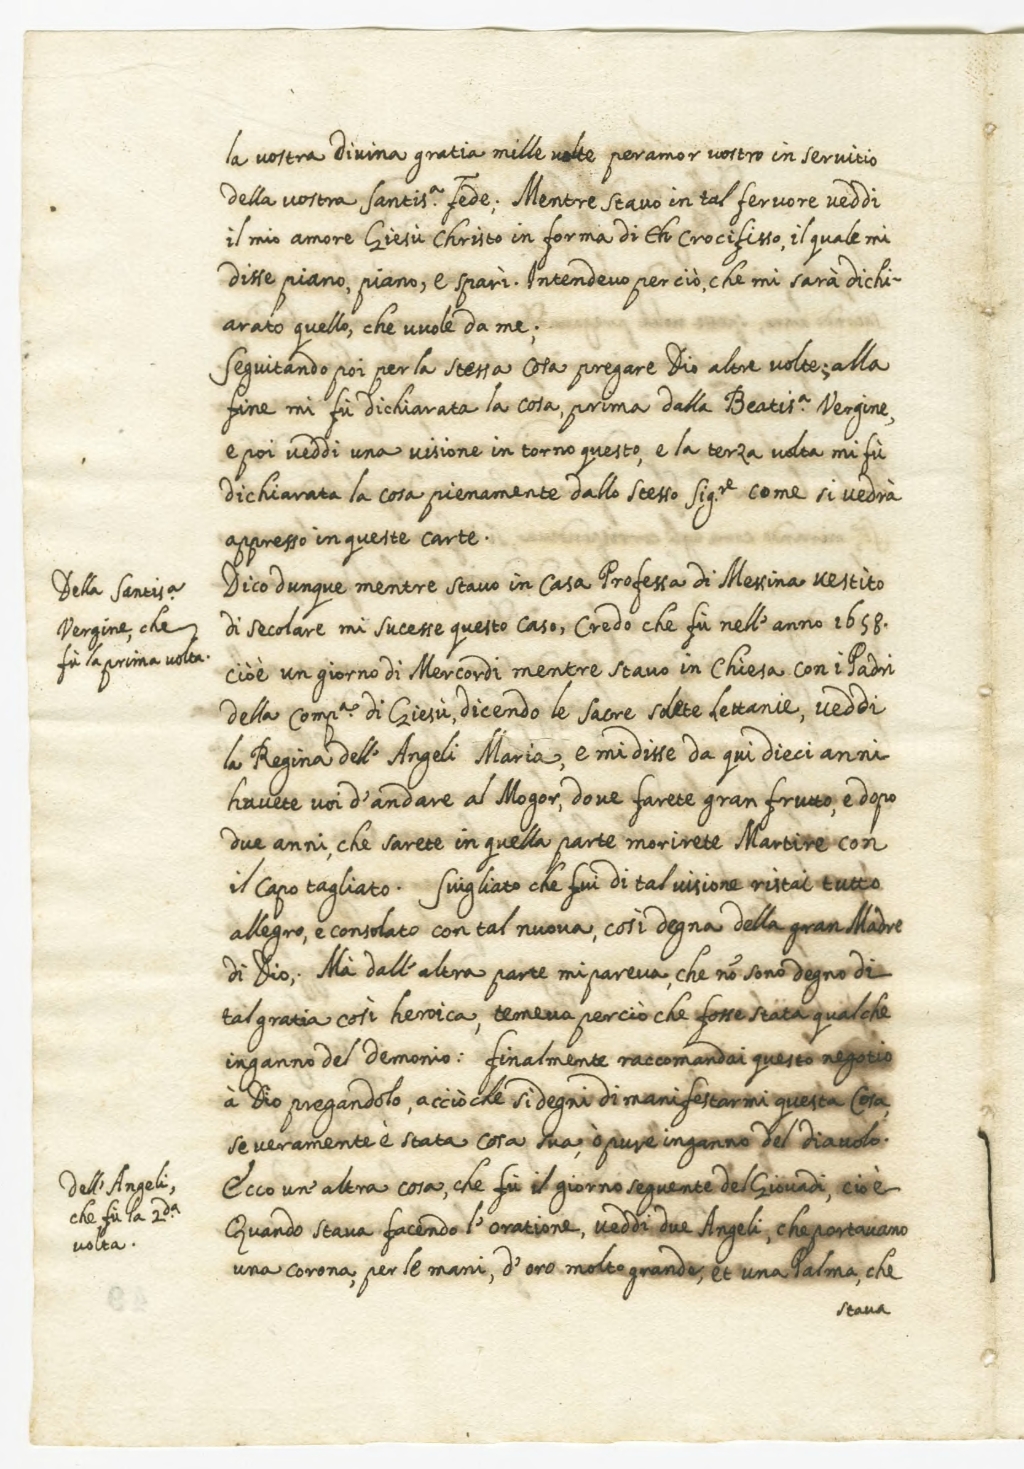 la vostra divina gratia mille volte per amor vostro in servitio
della vostra Santis.ª Fede; Mentre stavo in tal fervore veddi
il mio amore Giesù Christo in forma di Crocifisso, il quale mi
disse piano, piano, e sparì. Intendevo per ciò, che mi sarà dichi-
arato quello, che vuole da me;
Seguitando poi per la stessa cosa pregare Dio altre volte; alla
fine mi fù dichiarata la cosa, prima dalla Beatis.ª Vergine,
e poi veddi una visione in torno questo, e la terza volta mi fù
dichiarata la cosa pienamente dallo stesso Sig.re come si vedrà
appresso in queste carte.
Della Santis.ª
Vergine, che
fù la prima volta.
Dico dunque mentre stavo in Casa Professa di Messina vestito
di secolare mi sucesse questo caso, Credo che fù nell' anno 1658.
cioè un giorno di Mercordì mentre stavo in Chiesa con i Padri
della Comp.ª di Giesù, dicendo le sacre solete Lettanie, veddi
la Regina dell' Angeli Maria, e mi disse da qui dieci anni
havete voi d' andare al Mogor, dove farete gran frutto, e dopo
due anni, che sarete in quella parte morirete Martire con
il Capo tagliato. Svigliato che fui di tal visione ristai tutto
allegro, e consolato con tal nuova, così degna della gran Madre
di Dio; Mà dall' altra parte mi pareva, che nõ sono degno di
tal gratia così heroica, temeva perciò che fosse stata qualche
inganno del demonio: finalmente raccomandai questo negotio
à Dio pregandolo, acciò che si degni di manifestarmi questa Cosa,
se veramente è stata cosa sua, ò pure inganno del diavolo.
dell' Angeli,
che fù la 2.da
volta.
Ecco un' altra cosa, che fù il giorno seguente del Giovadi, cioè
Quando stava facendo l' oratione, veddi due Angeli, che portavano
una corona, per le mani, d' oro molto grande, et una Palma, che
stava